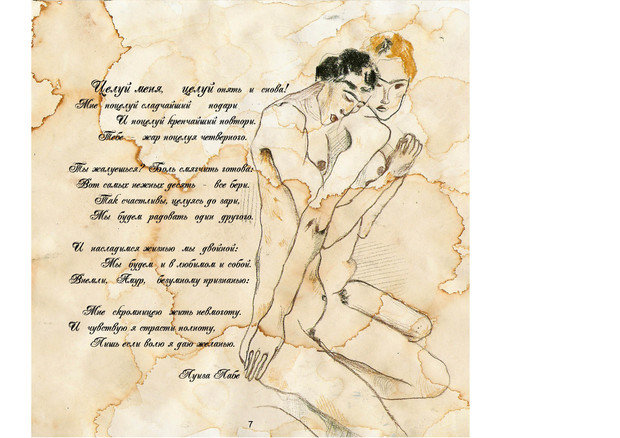 Целуй меня, целуй опять и снова!
Мне поцелуй сладчайший подари
И поцелуй крепчайший повтори.
Тебе - жар поцелуя четверного.
Ты жалуешься? Боль смягчить готова:
Вот самых нежных десять - все бери.
Так счастливы, целуясь до зари,
Мы будем радовать один другого.
И насладимся жизнью мы двойной:
Мы будем и в любимом и собой.
Внемли, Амур, безумному признанью:
Мне скромницею жить невмоготу.
И чувствую я страсти полноту,
Лишь если волю я даю желанью.
Луиза Лабе
7